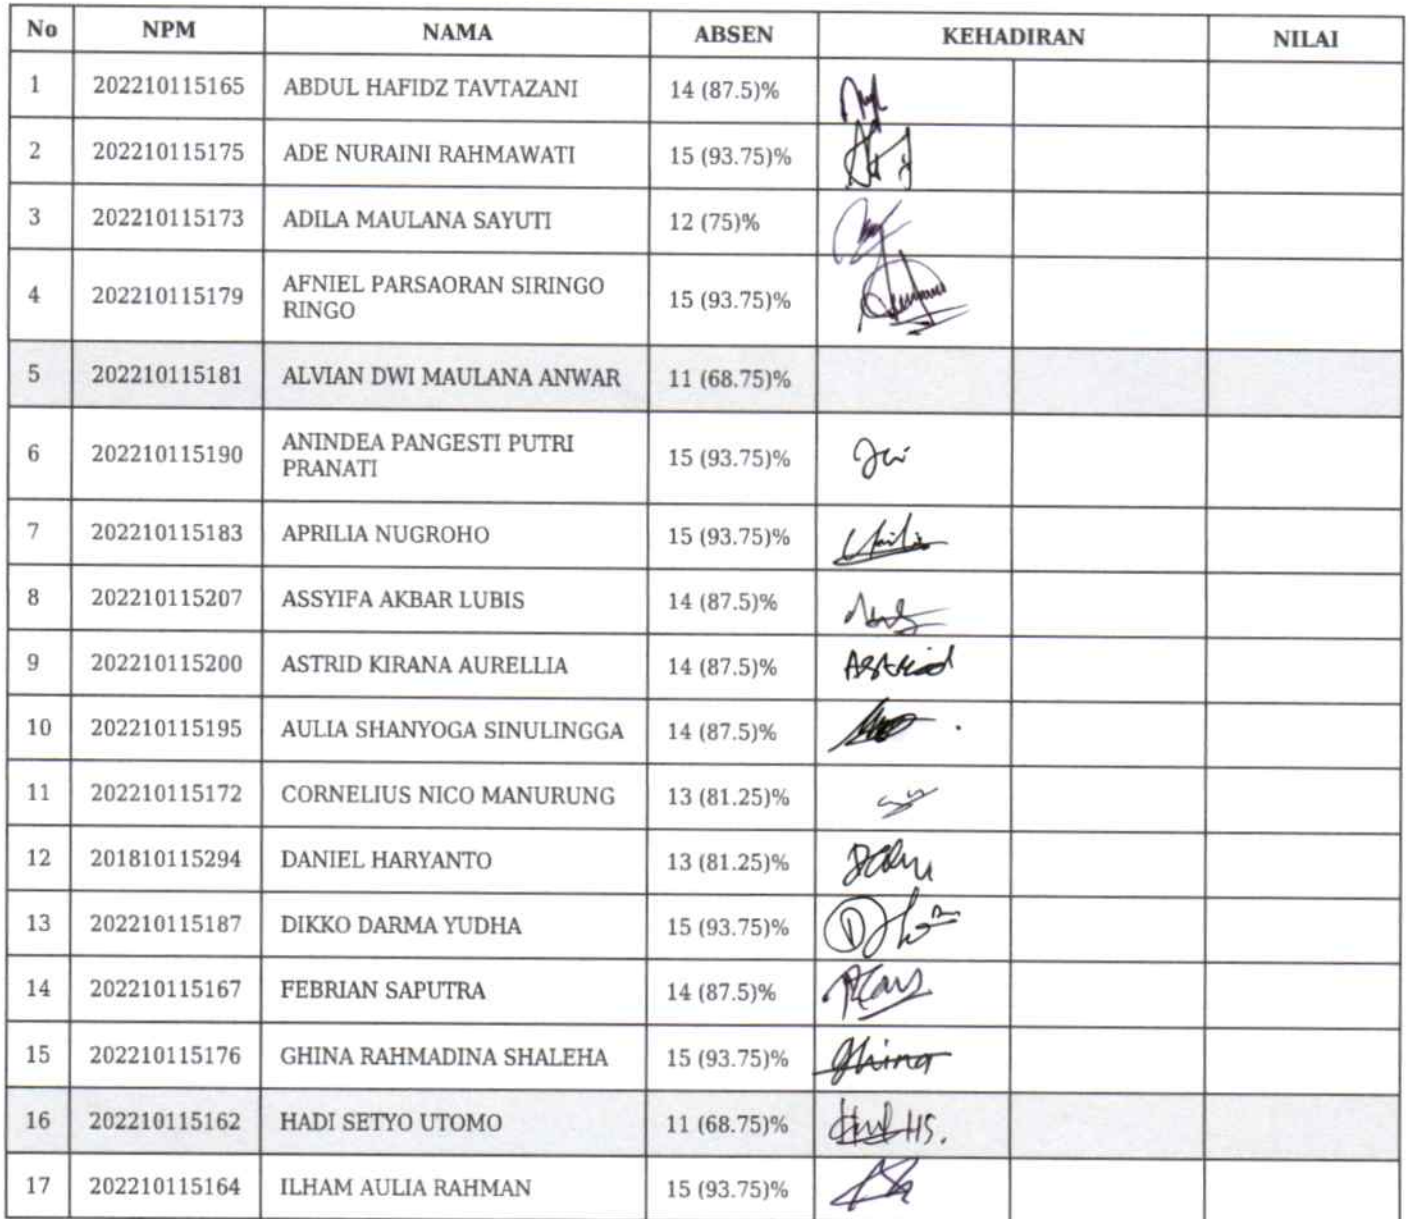 No NPM NAMA ABSEN KEHADIRAN NILAI
1 202210115165 ABDUL HAFIDZ TAVTAZANI 14 (87.5)%
2 202210115175 ADE NURAINI RAHMAWATI 15 (93.75)%
3 202210115173 ADILA MAULANA SAYUTI 12 (75)%
4 202210115179 AFNIEL PARSAORAN SIRINGO
RINGO 15 (93.75)%
5 202210115181 ALVIAN DWI MAULANA ANWAR 11 (68.75)%
6 202210115190 ANINDEA PANGESTI PUTRI
PRANATI 15 (93.75)%
7 202210115183 APRILIA NUGROHO 15 (93.75)%
8 202210115207 ASSYIFA AKBAR LUBIS 14 (87.5)%
9 202210115200 ASTRID KIRANA AURELLIA 14 (87.5)% Astrid
10 202210115195 AULIA SHANYOGA SINULINGGA 14 (87.5)%
11 202210115172 CORNELIUS NICO MANURUNG 13 (81.25)%
12 201810115294 DANIEL HARYANTO 13 (81.25)%
13 202210115187 DIKKO DARMA YUDHA 15 (93.75)%
14 202210115167 FEBRIAN SAPUTRA 14 (87.5)%
15 202210115176 GHINA RAHMADINA SHALEHA 15 (93.75)% Ghina
16 202210115162 HADI SETYO UTOMO 11 (68.75)% HS.
17 202210115164 ILHAM AULIA RAHMAN 15 (93.75)%